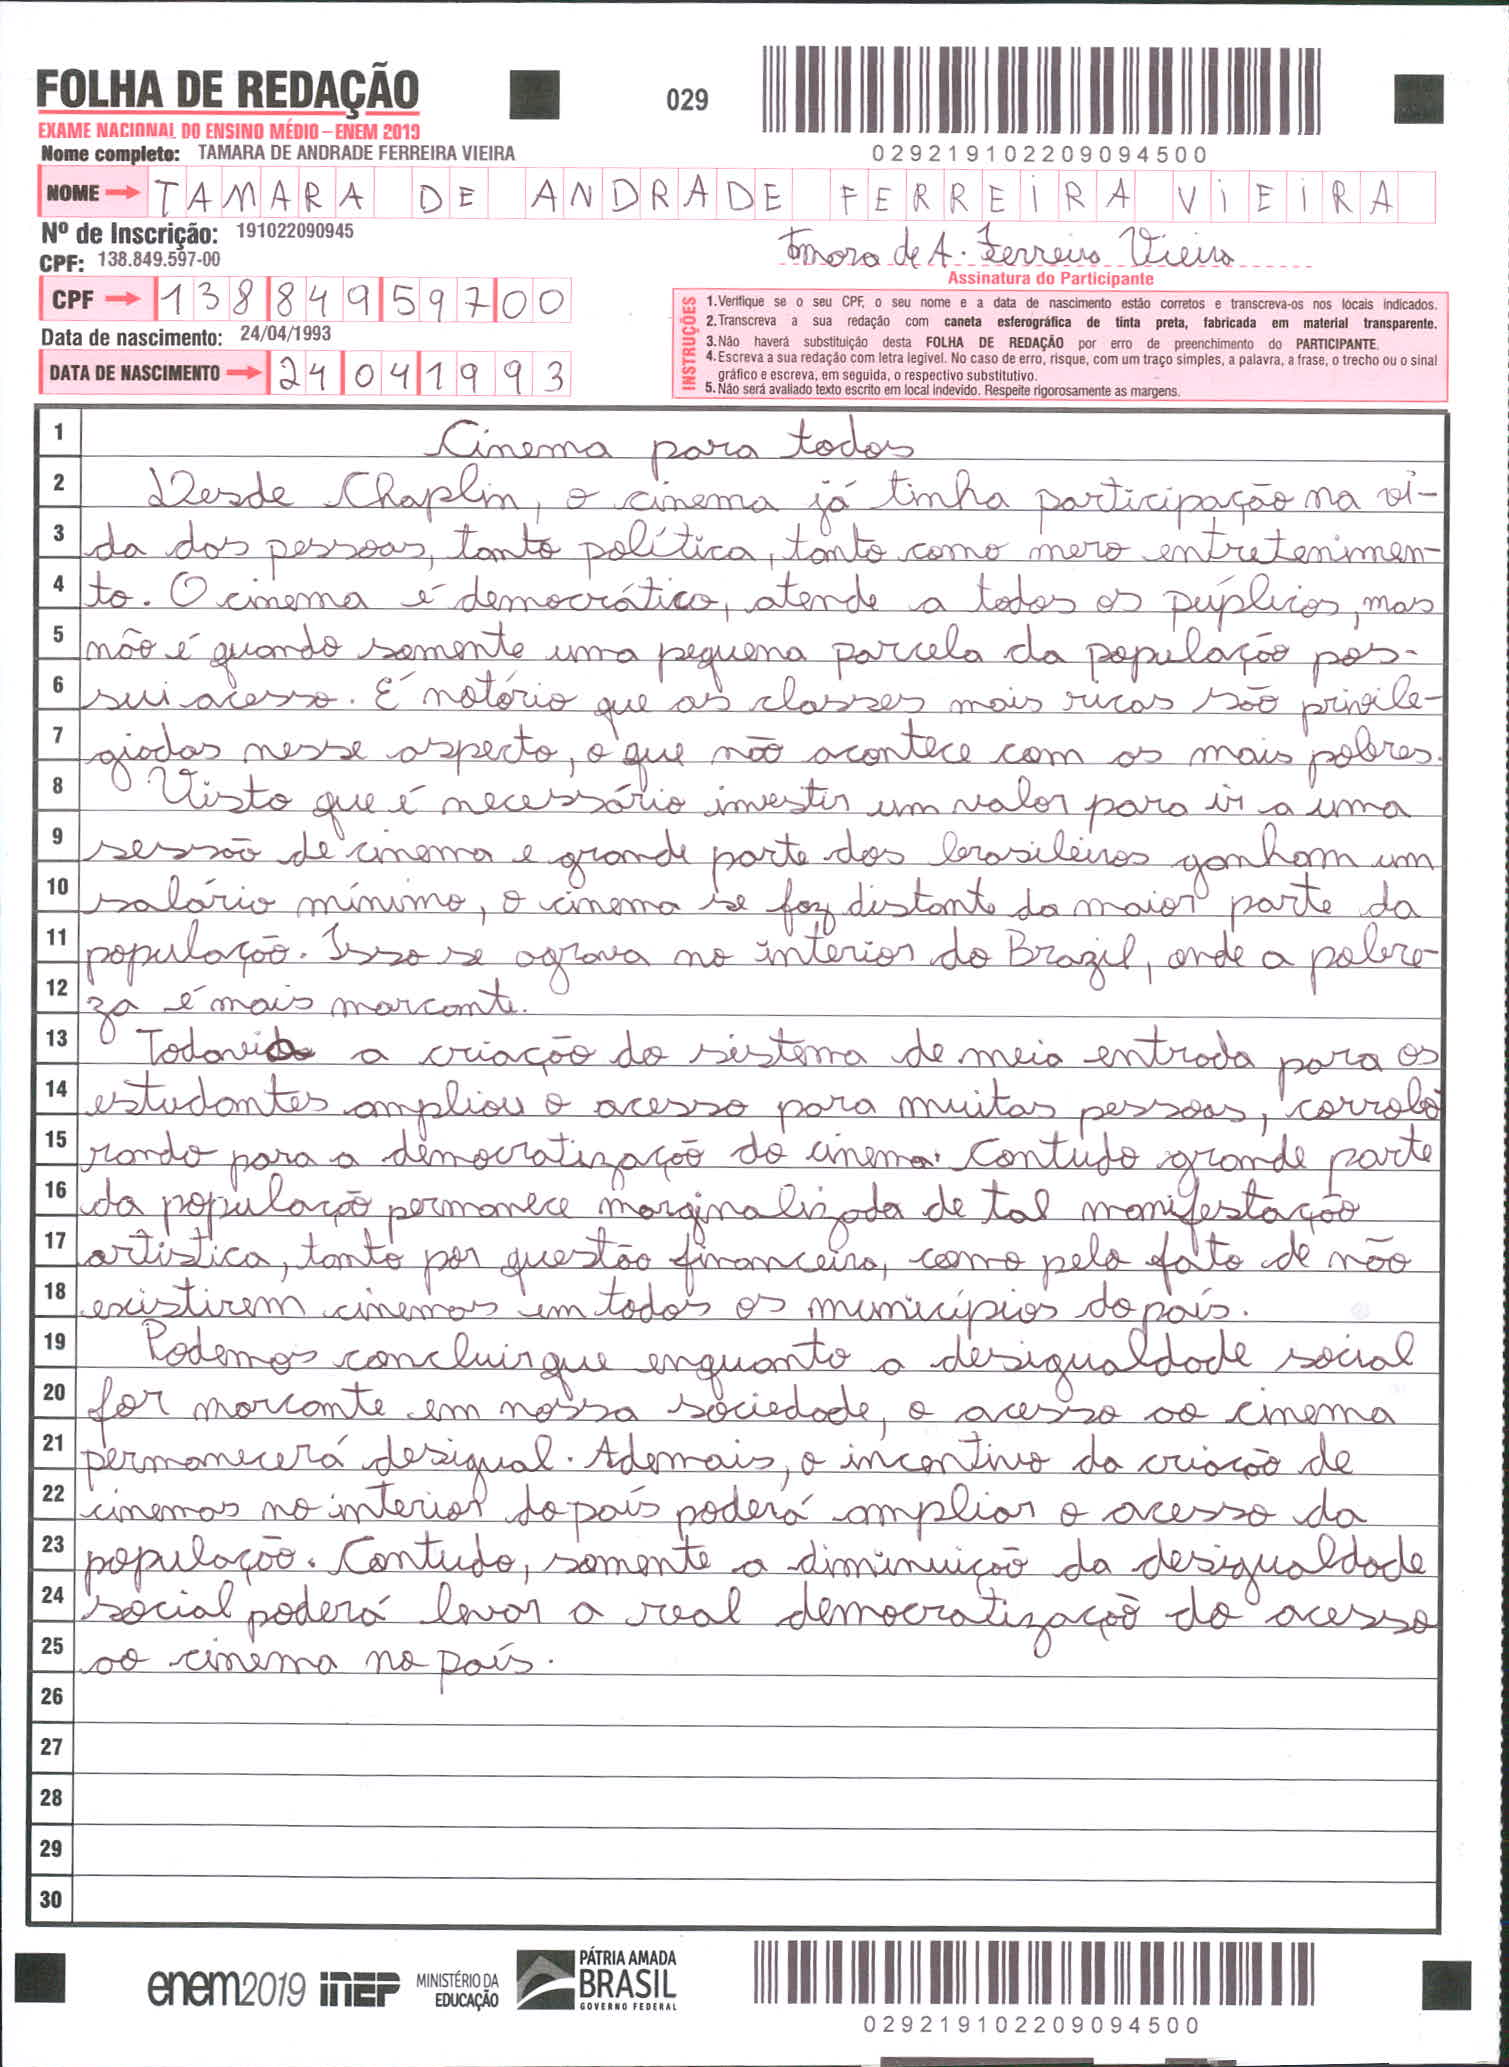 FOLHA DE REDAÇÃO
029
EXAME NACIONAL DO ENSINO MÉDIO – ENEM 2019
029219102209094500
Nome completo: TAMARA DE ANDRADE FERREIRA VIEIRA
NOME TAMARA DE ANDRADE FERREIRA VIEIRA
Nº de Inscrição: 191022090945
Tamara de A. Ferreira Vieira
CPF: 138.849.597-00
Assinatura do Participante
CPF 13884959700
Data de nascimento: 24/04/1993
DATA DE NASCIMENTO 24041993
INSTRUÇÕES
1. Verifique se o seu CPF, o seu nome e a data de nascimento estão corretos e transcreva-os nos locais indicados.
2. Transcreva a sua redação com caneta esferográfica de tinta preta, fabricada em material transparente.
3. Não haverá substituição desta FOLHA DE REDAÇÃO por erro de preenchimento do PARTICIPANTE.
4. Escreva a sua redação com letra legível. No caso de erro, risque, com um traço simples, a palavra, a frase, o trecho ou o sinal
gráfico e escreva, em seguida, o respectivo substitutivo.
5. Não será avaliado texto escrito em local indevido. Respeite rigorosamente as margens.
1 Cinema para todos
2 Desde Chaplin, o cinema já tinha participação na vi-
3 da das pessoas, tanto política, tanto como mero entretenimen-
4 to. O cinema é democrático, atende a todos os púplicos, mas
5 não é quando somente uma pequena parcela da população pos-
6 sui acesso. É notório que as classes mais ricas são privile-
7 giadas nesse aspecto, o que não acontece com os mais pobres.
8 Visto que é necessário investir um valor para ir a uma
9 sessão de cinema e grande parte dos brasileiros ganham um
10 salário mínimo, o cinema se faz distante da maior parte da
11 população. Isso se agrava no interior do Brazil, onde a pobre-
12 za é mais marcante.
13 Todavia a criação do sistema de meia entrada para os
14 estudantes ampliou o acesso para muitas pessoas, corrobo
15 rando para a democratização do cinema. Contudo grande parte
16 da população permanece marginalizada de tal manifestação
17 artística, tanto por questão financeira, como pelo fato de não
18 existirem cinemas em todos os municípios do país.
19 Podemos concluir que enquanto a desigualdade social
20 for marcante em nossa sociedade, o acesso ao cinema
21 permanecerá desigual. Ademais, o incentivo da criação de
22 cinemas no interior do país poderá ampliar o acesso da
23 população. Contudo, somente a diminuição da desigualdade
24 social poderá levar a real democratização do acesso
25 ao cinema no país.
26
27
28
29
30
enem2019 inep MINISTÉRIO DA EDUCAÇÃO PÁTRIA AMADA BRASIL GOVERNO FEDERAL
029219102209094500